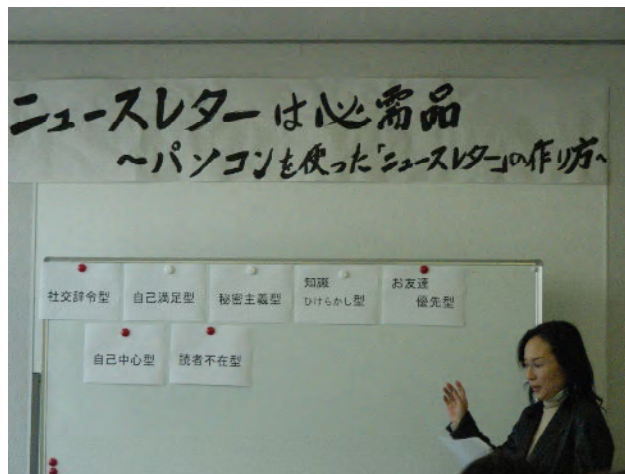 ニュースレターは必需品
～パソコンを使った「ニュースレター」の作り方～
社交辞令型
自己満足型
秘密主義型
知識
ひけらかし型
お友達
優先型
自己中心型
読者不在型